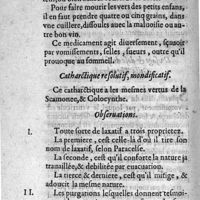 Pour faire mourir les vers des petits enfans,
il en faut prendre quatre ou cinq grains, dans
vne cuillere, dissouts auec la maluoisie ou au-
tre bon vin.
Ce medicament agit diuersement, sçauoit
par vomissements, selles, sueurs, outre qu'il
prouoque au sommeil.
Catharctique resolutif, mondificatif.
Ce catharctique a les mesmes vertus de la
Scamonee, & Colocynthe.
Obseruations.
I. Toute sorte de laxatif a trois proprietez.
La premiere, c'est celle-là d'où il tire son
nom de laxatif, selon Paracelse.
La seconde, est qu'il conforte la nature ja
trauaillée, & debilitée par euacuation.
La tierce & derniere, est qu'il mitige, &
adoucit la mesme nature.
II. Les purgations lesquelles donnent tesmoi-